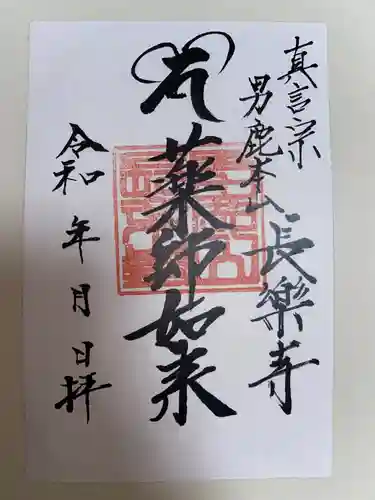 真言宗
男鹿本山
長樂寺
薬師如来
令和 年 月 日 拝